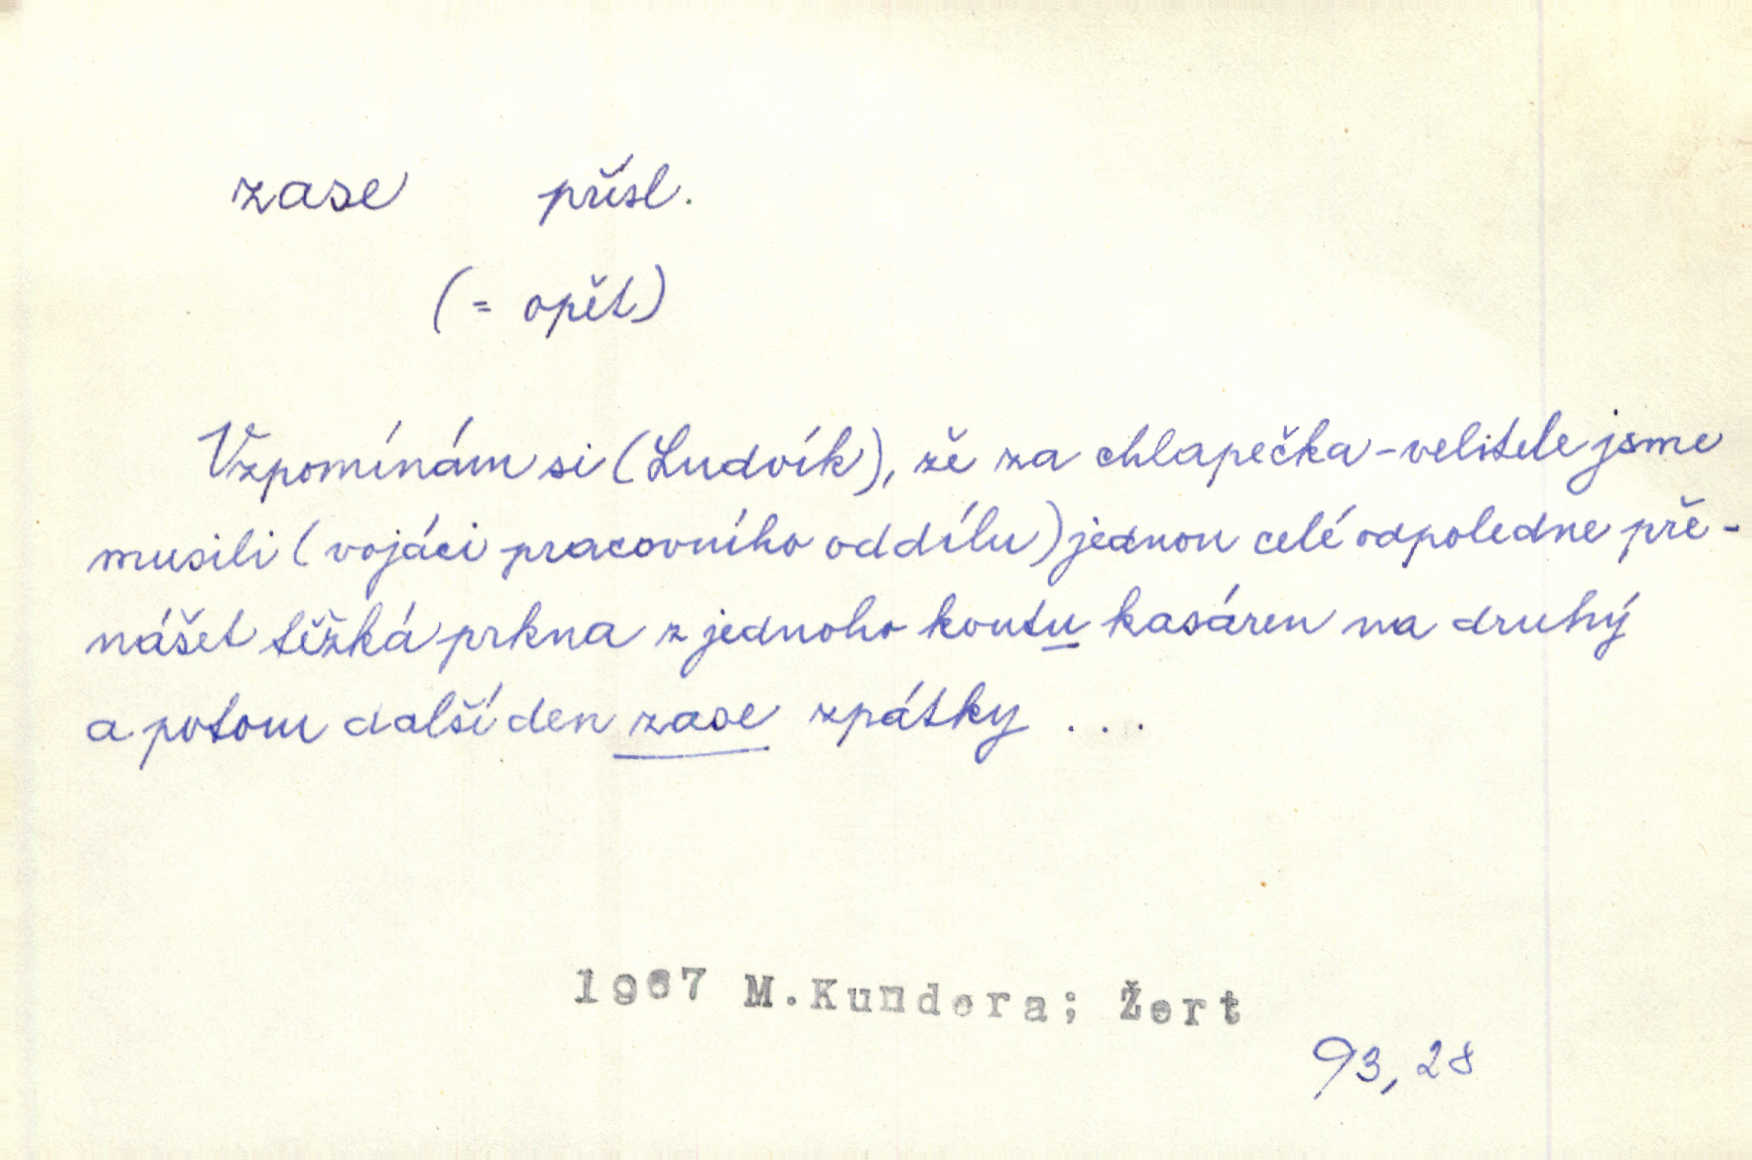 zase přísl.
(= opět)
Vzpomínám si (Ludvík), že za chlapečka-velitele jsme
musili (vojáci pracovního oddílu) jednou celé odpoledne pře-
nášet těžká prkna z jednoho koutu kasáren na druhý
a potom další den zase zpátky ...
1967 M.Kundera; Žert
93, 28